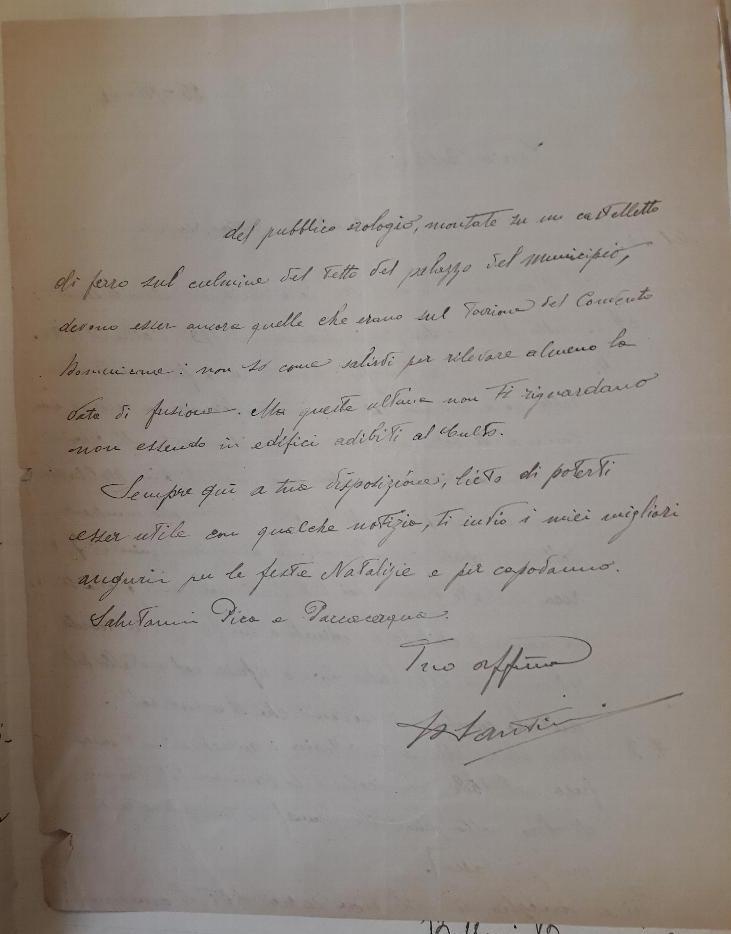 del pubblico orologio, montate su un castelletto
di ferro sul culmine del tetto del palazzo del municipio,
devono esser ancora quelle che erano sul Torrione del Convento
non so come salirsi per rilevare almeno la
data di fusione. Ma queste ultime non ti riguardano
non essendo in edifici adibiti al Culto.
Sempre qui a tua disposizione, lieto di poterti
esser utile con qualche notizia, ti invio i miei migliori
augurii per le feste Natalizie e per capodanno.
Salutami Pico e
Tuo affmo
Santini